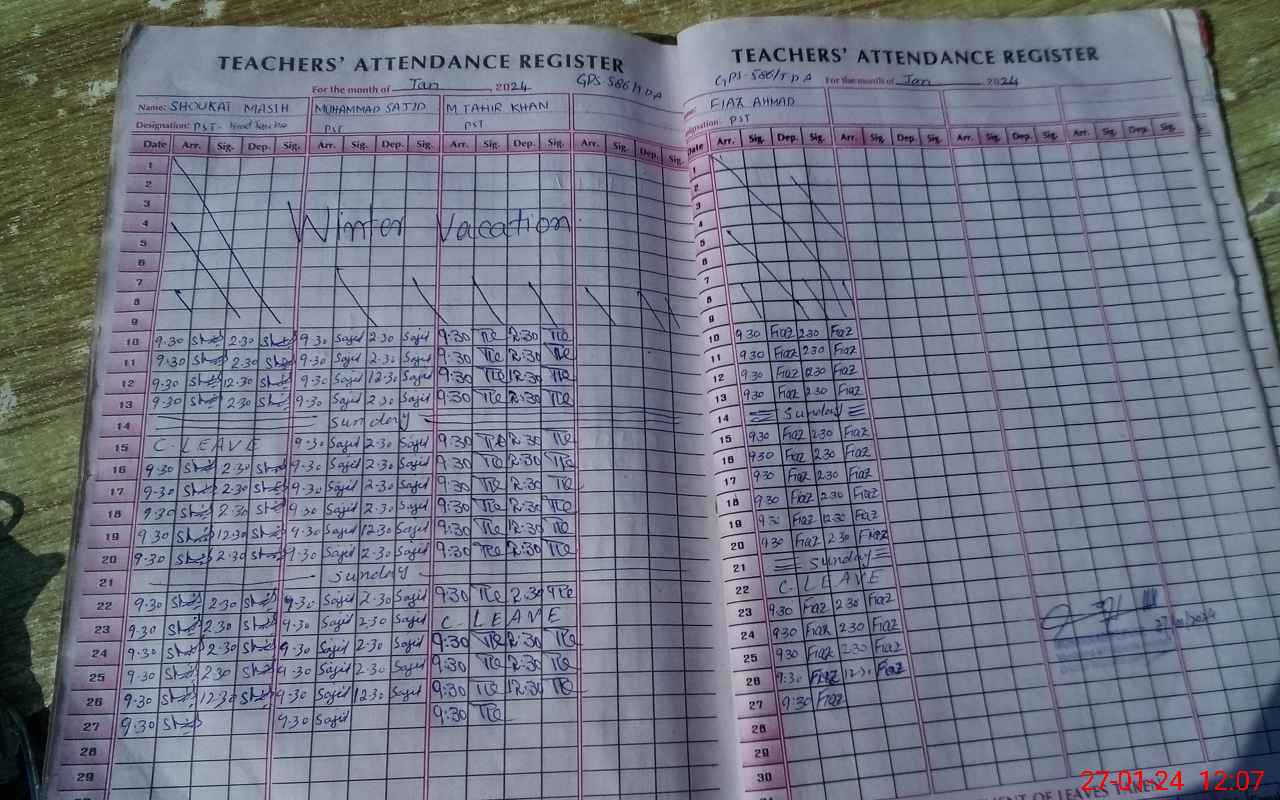 TEACHERS' ATTENDANCE REGISTER
For the month of Jan, 2024 GPS-566/TDA
Name: SHOUKAT MASIH MUHAMMAD SAJID M TAHIR KHAN
Designation: PST- Head Teacher PST PST
Date Arr. Sig. Dep. Sig. Arr. Sig. Dep. Sig. Arr. Sig. Dep. Sig. Arr. Sig. Dep. Sig.
1
2
3
4 Winter Vacation
5
6
7
8
9
10 9.30 2.30 9.30 Sajid 2.30 Sajid 9:30 2:30
11 9.30 2.30 9.30 Sajid 2.30 Sajid 9:30 2:30
12 9.30 12.30 9.30 Sajid 12.30 Sajid 9:30 12:30
13 9.30 2.30 9.30 Sajid 2.30 Sajid 9:30 2:30
14 Sunday
15 C-LEAVE 9.30 Sajid 2.30 Sajid 9:30 2:30
16 9.30 2.30 9.30 Sajid 2.30 Sajid 9:30 2:30
17 9.30 2.30 9.30 Sajid 2.30 Sajid 9:30 2:30
18 9.30 2.30 9.30 Sajid 2.30 Sajid 9:30 2:30
19 9.30 12.30 9.30 Sajid 12.30 Sajid 9:30 12:30
20 9.30 2.30 9.30 Sajid 2.30 Sajid 9:30 2:30
21 Sunday
22 9.30 2.30 9.30 Sajid 2.30 Sajid 9:30 2:30
23 9.30 2.30 9.30 Sajid 2.30 Sajid C-LEAVE
24 9.30 2.30 9.30 Sajid 2.30 Sajid 9:30 2:30
25 9.30 2.30 9.30 Sajid 2.30 Sajid 9:30 2:30
26 9.30 12.30 9.30 Sajid 12.30 Sajid 9:30 12:30
27 9.30 9.30 Sajid 9:30
28
29
TEACHERS' ATTENDANCE REGISTER
GPS-566/TDA For the month of Jan 2024
FIAZ AHMAD
PST
Date Arr. Sig. Dep. Sig. Arr. Sig. Dep. Sig. Arr. Sig. Dep. Sig. Arr. Sig. Dep. Sig.
1
2
3
4
5
6
7
8
9
10 9.30 Fiaz 2.30 Fiaz
11 9.30 Fiaz 2.30 Fiaz
12 9.30 Fiaz 12.30 Fiaz
13 9.30 Fiaz 2.30 Fiaz
14 Sunday
15 9.30 Fiaz 2.30 Fiaz
16 9.30 Fiaz 2.30 Fiaz
17 9.30 Fiaz 2.30 Fiaz
18 9.30 Fiaz 2.30 Fiaz
19 9.30 Fiaz 12.30 Fiaz
20 9.30 Fiaz 2.30 Fiaz
21 Sunday
22 C-LEAVE
23 9.30 Fiaz 2.30 Fiaz
24 9.30 Fiaz 2.30 Fiaz
25 9.30 Fiaz 2.30 Fiaz
26 9:30 Fiaz 12.30 Fiaz
27 9:30 Fiaz
28
29
30
OF LEAVES TAKEN
27-01-24 12:07